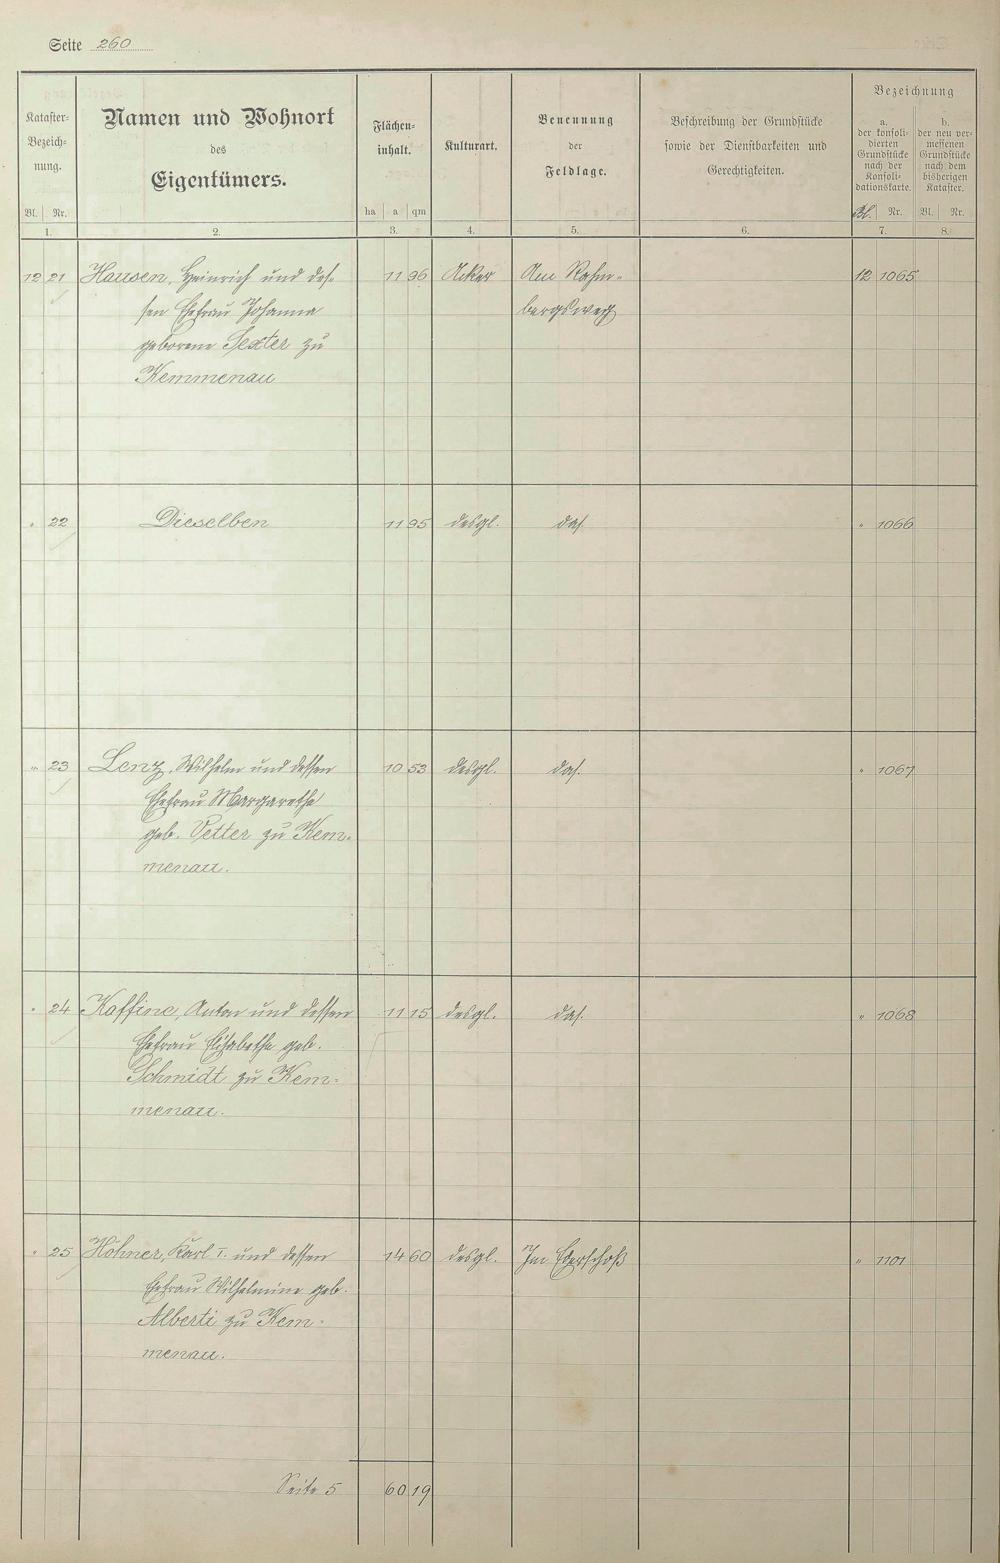 Seite 260
Kataster-Bezeich-nung. Namen und Wohnort des Eigentümers. Flächen-inhalt. Kulturart. Benennung der Feldlage. Beschreibung der Grundstücke sowie der Dienstbarkeiten und Gerechtigkeiten. Bezeichnung
a. der konsoli-dierten Grundstücke nach der Konsoli-dationskarte. b. der neu ver-messenen Grundstücke nach dem bisherigen Kataster.
Bl. Nr. ha a qm Bl. Nr. Bl. Nr.
1. 2. 3. 4. 5. 6. 7. 8.
12 21 Hausen, Heinrich und des- 11 96 Acker Am 12 1065
sen Ehefrau Johanna bergsweg
geborene Sexter zu
Kemmenau
" 22 Dieselben 11 95 desgl. das. " 1066
" 23 Lenz, Wilhelm und dessen 10 53 desgl. das. " 1067
Ehefrau Margarethe
geb. Vetter zu Kem-
menau.
" 24 Kaffine, Anton und dessen 11 15 desgl. das. " 1068
Ehefrau Elisabethe geb.
Schmidt zu Kem-
menau.
" 25 Höhner, Karl I. und dessen 14 60 desgl. Im " 1101
Ehefrau Wilhelmine geb.
Alberti zu Kem-
menau.
Seite 5 60 19